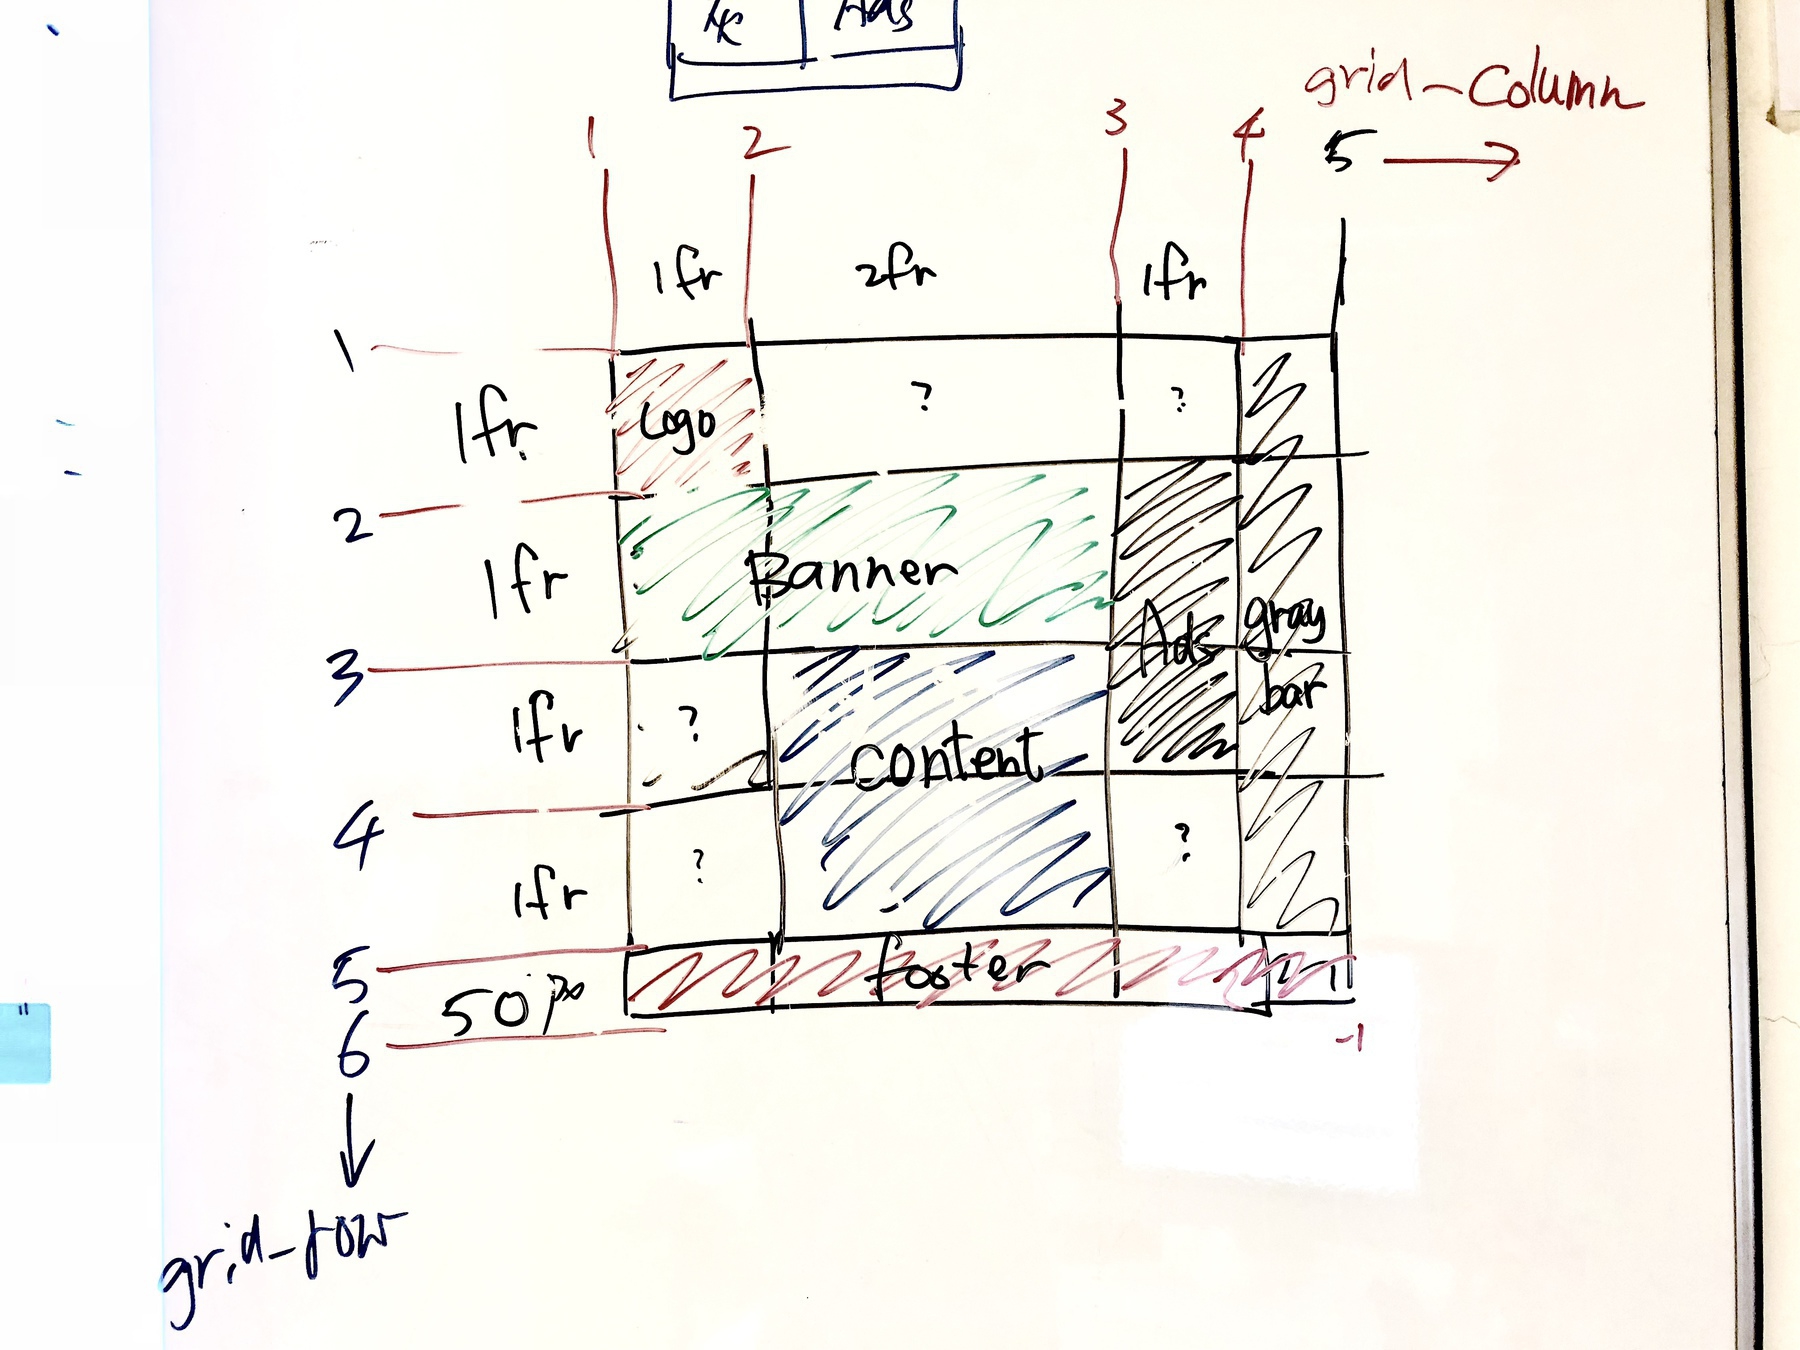 Ads
grid-column
1 2 3 4 5
1fr 2fr 1fr
1
1fr Logo ? ?
2
1fr Banner
Ads gray
3
bar
1fr ?
content
4
1fr ? ?
5
footer
50px
6
-1
grid-row